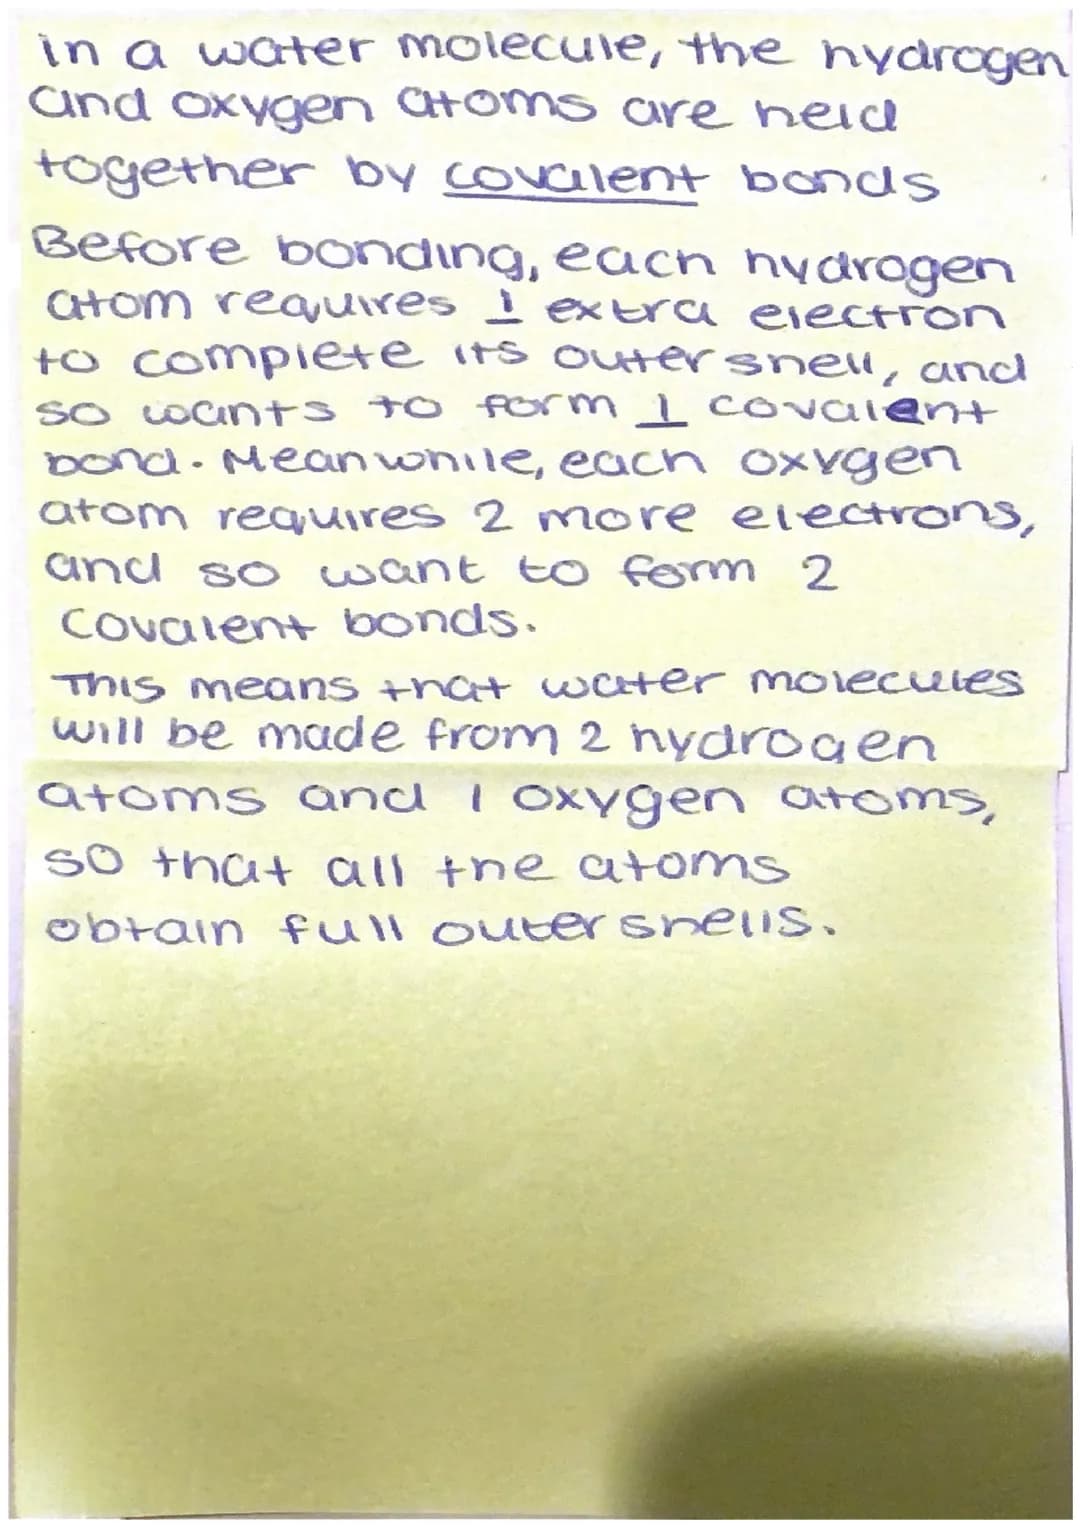 in a water molecule, the hydrogen
and oxygen atoms are held
together by covalent bonds
Before bonding, each hydrogen
atom requires 1 extra electron
to complete its outer shell, and
so wants to form 1 covalent
bond. Meanwhile, each oxygen
atom requires 2 more electrons,
and so want to form 2
covalent bonds.
This means that water molecules
will be made from 2 hydrogen
atoms and 1 oxygen atoms,
so that all the atoms
obtain full outer shells.